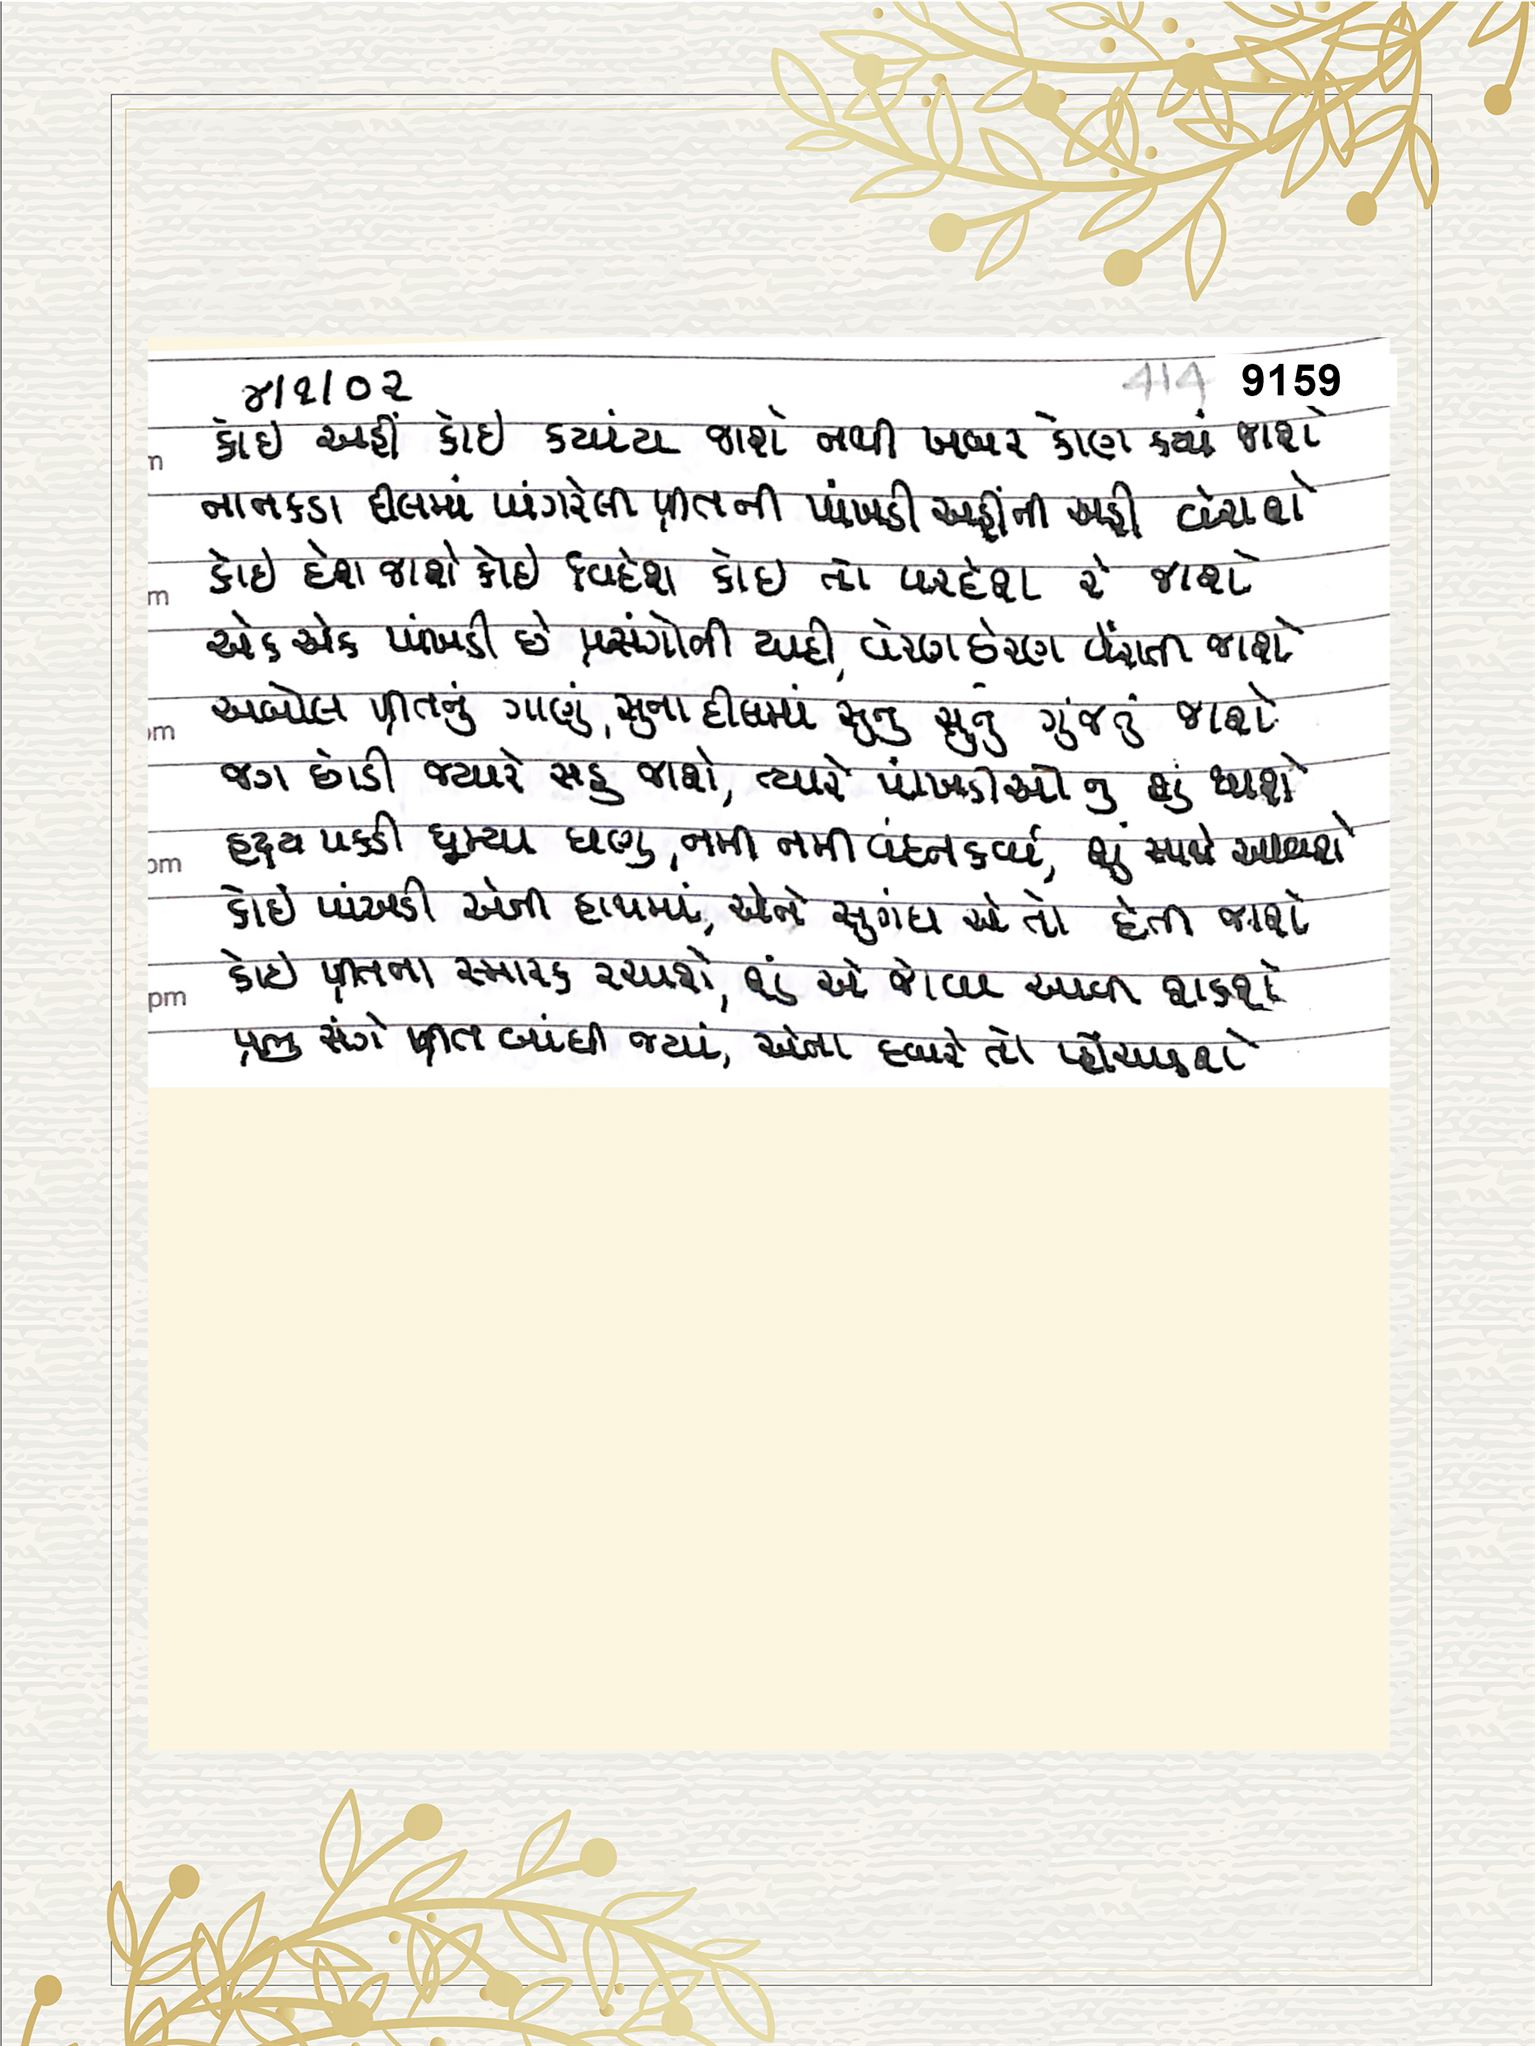 ૪/૧/૦૨ 414 9159
કોઇ અહીં કોઇ કયાંય જાશે નથી ખબર કોણ કયાં જાશે
નાનકડા દીલમાં પાંગરેલી પ્રીતની પાંખડી અહીંની અહી વેરાશે
કોઇ દેશ જાશે કોઇ વિદેશ કોઇ તો પરદેશ રે જાશે
એક એક પાંખડી છે પ્રસંગોની યાદી, વેરણછેરણ વેરાતી જાશે
અબોલ પ્રીતનું ગાણું, સુના દીલમાં સુનુ સુનુ ગુંજતું જાશે
જગ છોડી જ્યારે સહુ જાશે, ત્યારે પાંખડીઓનુ શું થાશે
હૃદય પકડી ઘૂમ્યા ઘણુ, નમી નમી વંદન કર્યા, શું સાથે આવશે
કોઇ પાંખડી એની હાથમાં, એને સુગંધ એ તો દેતી જાશે
કોઇ પ્રીતના સ્મારક રચાશે, શું એ જોવા આવી શકશે
પ્રભુ સંગે પ્રીત બાંધી જ્યાં, એના દ્વારે તો પ્હોંચાડશે
m
m
om
om
pm